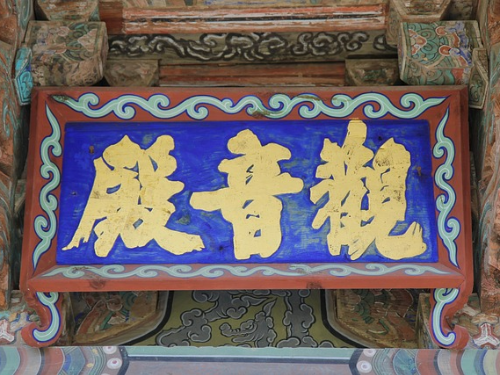 觀音殿